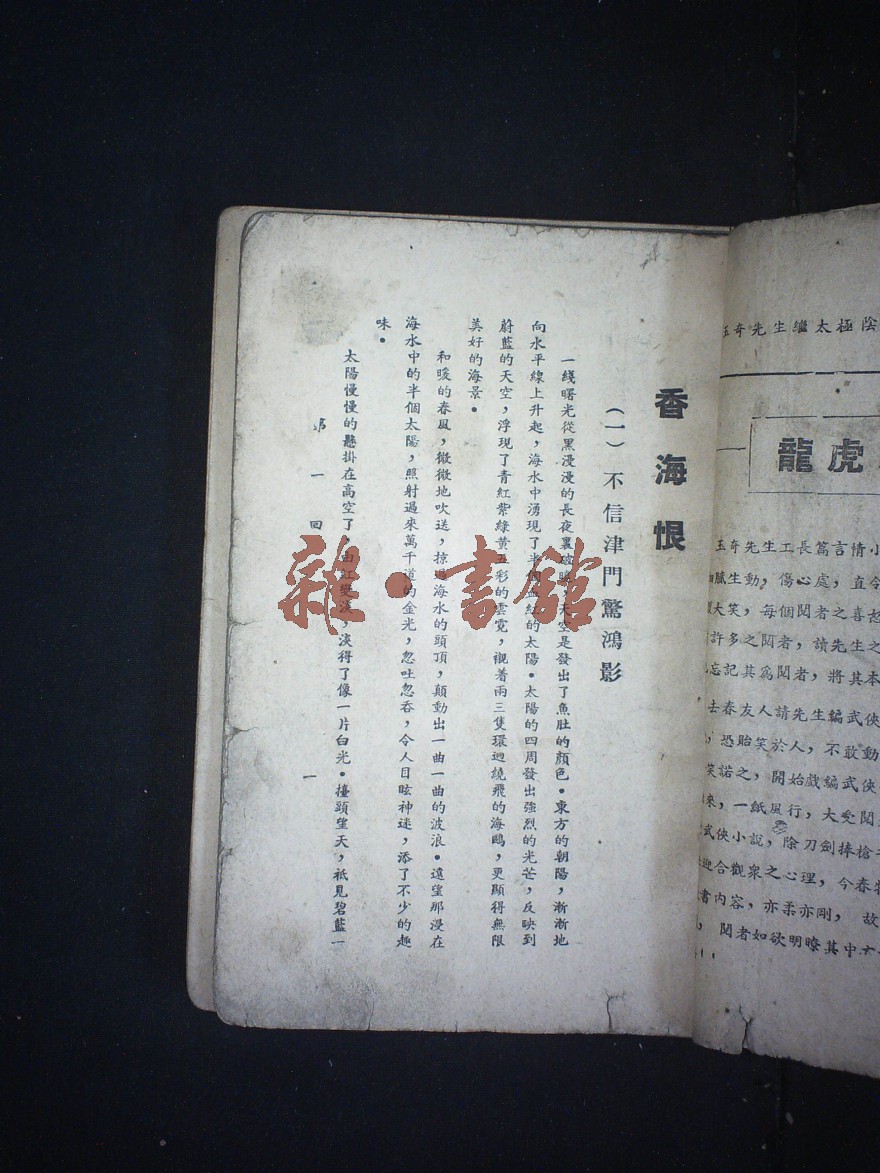 香海恨
（一）不信津門驚鴻影
一綫曙光從黑漫漫的長夜裏破曉，天空是發出了魚肚的顏色•東方的朝陽，漸漸地
向水平線上升起，海水中湧現了半個血紅的太陽•太陽的四周發出強烈的光芒，反映到
蔚藍的天空，浮現了青紅紫綠黃五彩的雲霓，襯着兩三隻環迴繞飛的海鷗，更顯得無限
美好的海景•
和暖的春風，微微地吹送，掠過海水的頭頂，顛動出一曲一曲的波浪•遠望那浸在
海水中的半個太陽，照射過來萬千道的金光，忽吐忽吞，令人目眩神迷，添了不少的趣
味•
太陽慢慢的懸掛在高空了，由紅變淡，淡得了像一片白光•擡頭望天，祇見碧藍一
第一回
一
雜•書館
玉奇先生繼太極陰
龍虎
玉奇先生工長篇言情小
膩生動，傷心處，直令
大笑，每個閱者之喜
許多之閱者，讀先生之
忘記其爲閱者，將其本
去春友人請先生編武俠
，恐貽笑於人，不敢動
笑諾之，開始戲編武俠
來，一紙風行，大受閱
武俠小說，除刀劍捧槍
迎合觀衆之心理，今春
書內容，亦柔亦剛，故
，閱者如欲明瞭其中